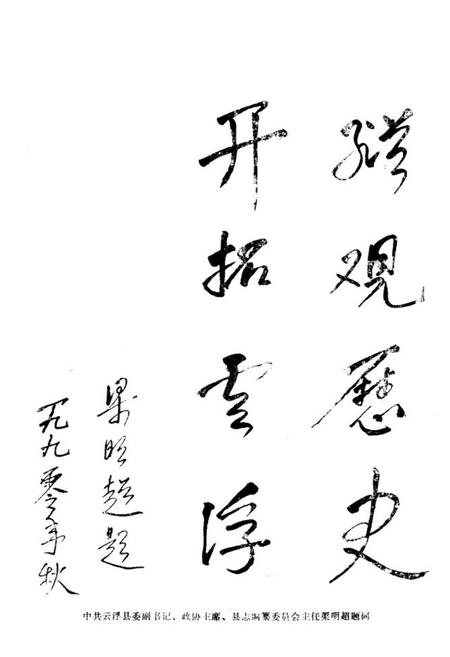 纵观历史
开拓云浮
梁明超题
一九九零年秋
中共云浮县委副书记、政协主席、县志编纂委员会主任梁明超题词